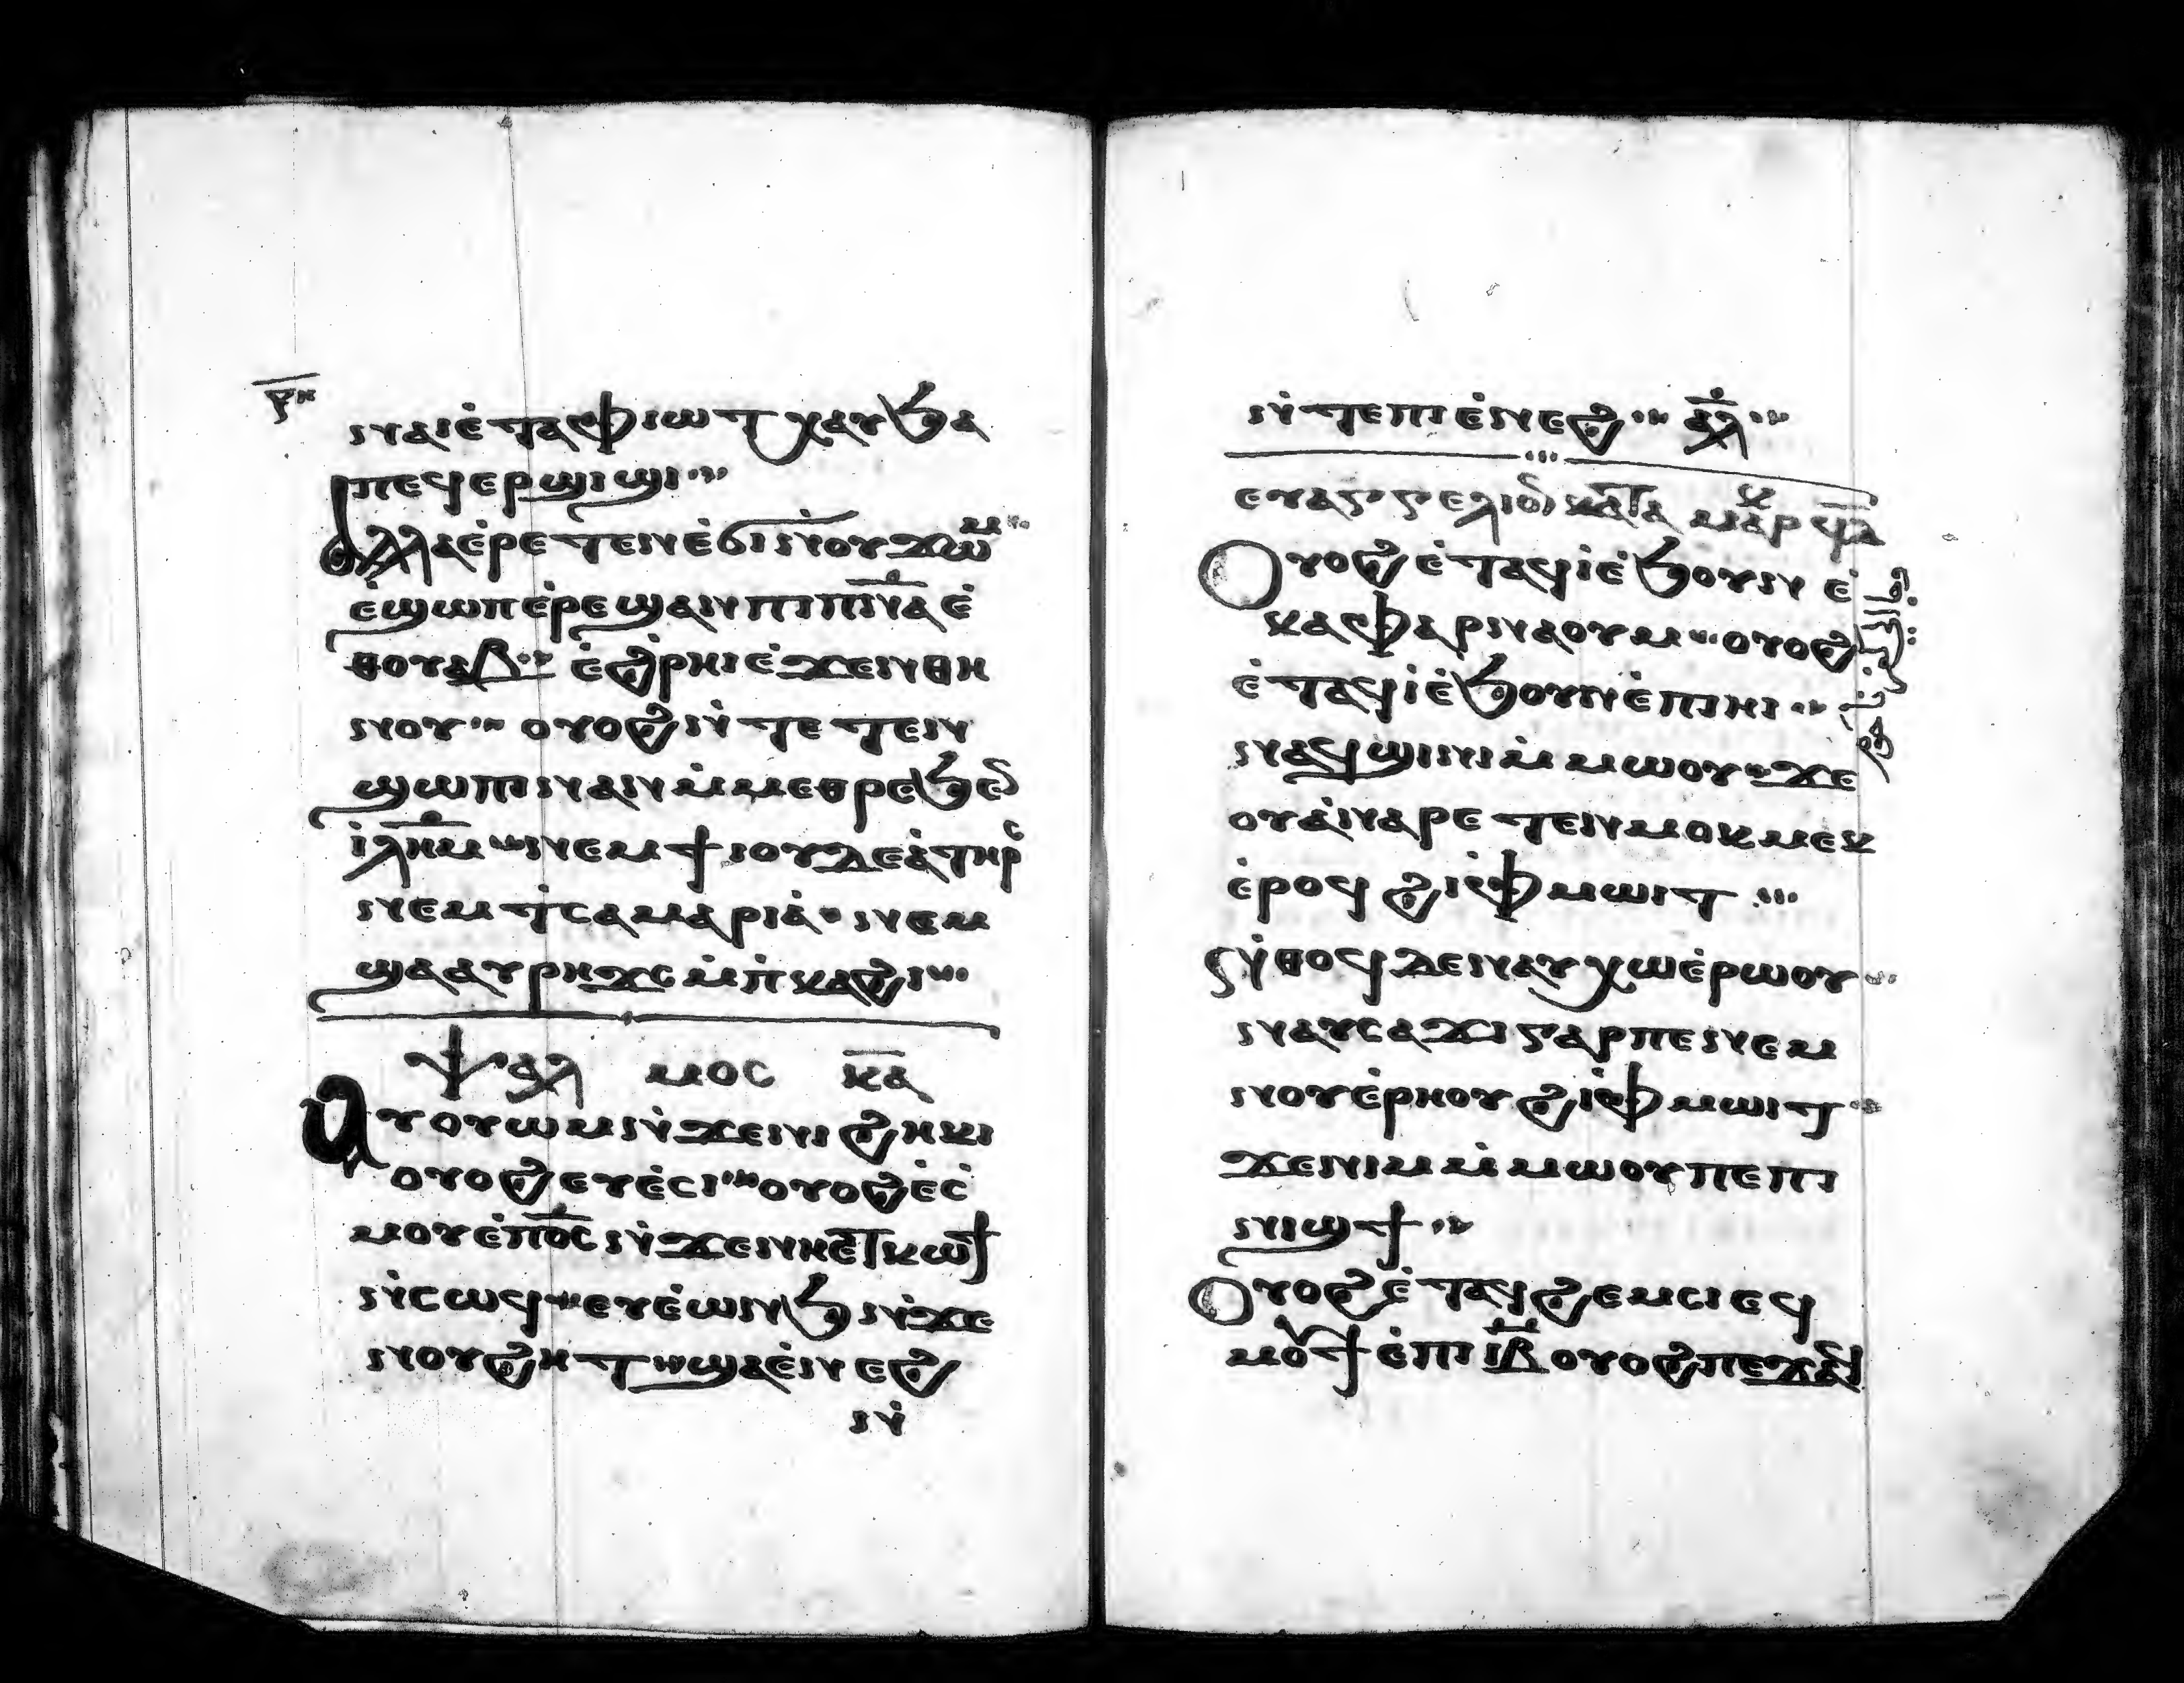 ⲣ̅ⲏ
ⲛⲁⲓⲉ̀ⲧⲁⲫⲓⲱⲧⲭⲁⲩϧⲁ
ⲡⲉϥⲉⲣϣⲓϣⲓ
ⲁⲗⲗⲁⲉ̀ⲣⲉⲧⲉⲛⲉ̀ϭⲓⲛ̀ⲟⲩϫⲱⲙ
ⲉ̀ϣⲱⲡⲉ̀ⲣⲉϣⲁⲛⲡⲓⲡ̅ⲛ̅ⲁ̅ⲉ̀
ⲑⲟⲩⲁⲃ ⲉ̀ϩⲣⲏⲓⲉ̀ϫⲉⲛⲑⲏ
ⲛⲟⲩ ⲟⲩⲟϩⲛ̀ⲧⲉⲧⲉⲛ
ϣⲱⲡⲓⲛⲁⲛⲙ̀ⲙⲉⲑⲣⲉϧⲉⲛ
ⲓ̀ⲗ̅ⲏ̅ⲙ ⲛⲉⲙϯⲓⲟⲩⲇⲉⲁ̀ⲧⲏⲣⲥ
ⲛⲉⲙⲧ̀ⲥⲁⲙⲁⲣⲓⲁ̀ ⲛⲉⲙ
ϣⲁⲁⲩⲣⲏϫⲥⲙ̀ⲡ̀ⲕⲁϩⲓ
ⲯⲁⲗ ⲙⲟⲥ ⲕ̅ⲁ̅
ⲁⲩⲟⲩⲱⲙⲛ̀ϫⲉⲛⲓϩⲏⲕⲓ
ⲟⲩⲟϩⲉⲩⲉ̀ⲥⲓ ⲟⲩⲟϩⲉ̀ⲥ̀
ⲙⲟⲩⲉ̀ⲡ̅ⲟ̅ⲥ̅ⲛ̀ϫⲉⲛⲏⲉⲧⲕⲱϯ
ⲛ̀ⲥⲱϥ ⲉⲩⲉ̀ⲱⲛϧⲛ̀ϫⲉ
ⲛⲟⲩϩⲏⲧϣⲁⲉ̀ⲛⲉϩ
ⲛ̀
ⲛ̀ⲧⲉⲡⲓⲉ̀ⲛⲉϩ ⲁ̅ⲗ̅
ⲉⲩⲁⲅⲅⲉⲗⲓⲟⲛ ⲕⲁⲧⲁ ⲙⲁⲣⲕ ϥ̅ⲁ̅
ⲟⲩⲟϩⲉ̀ⲧⲁϥⲓ̀ⲉ̀ϧⲟⲩⲛ ⲉ̀
ⲕⲁⲫⲁⲣⲛⲁⲟⲩⲙ ⲟⲩⲟϩ
ⲉ̀ⲧⲁϥⲓ̀ⲉ̀ϧⲟⲩⲛⲉ̀ⲡⲓⲏⲓ
ⲛⲁϥϣⲓⲛⲓⲙ̀ⲙⲱⲟⲩ ϫⲉ
ⲟⲩⲁ̀ⲛⲁⲣⲉⲧⲉⲛⲙⲟⲕⲙⲉⲕ
ⲉ̀ⲣⲟϥϩⲓⲫⲙⲱⲓⲧ
ⲛ̀ⲑⲟϥⲇⲉⲛⲁⲩⲭⲱⲉ̀ⲣⲱⲟⲩ
ⲛⲁⲩⲥⲁϫⲓⲅⲁⲣⲡⲉⲛⲉⲙ
ⲛⲟⲩⲉ̀ⲣⲏⲟⲩϩⲓⲫⲙⲱⲓⲧ
ϫⲉⲛⲓⲙⲙ̀ⲙⲱⲟⲩⲡⲉⲡⲓ
ⲛⲓϣϯ
ⲟⲩⲟϩⲉ̀ⲧⲁϥϩⲉⲙⲥⲓⲉϥ
ⲙⲟⲩϯⲉ̀ⲡⲓⲓ̅ⲃ̅ⲟⲩⲟϩⲡⲉϫⲁϥ